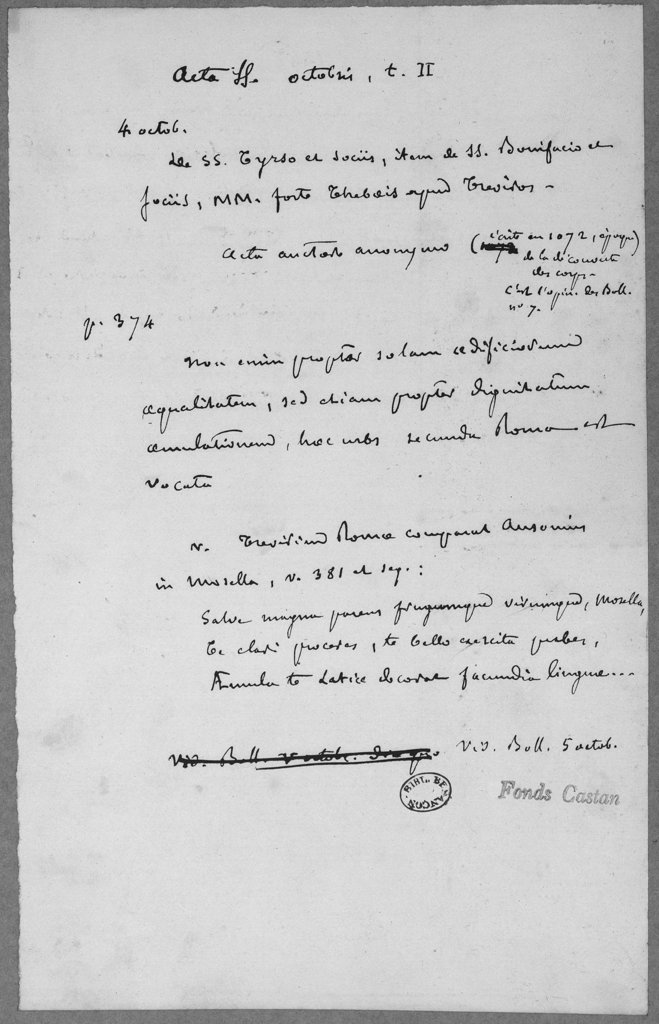 Acta SS. octobris, t. II
4 octob.
De SS. Tyrso et sociis, item de SS. Bonifacio et
sociis, MM. forte Thebæis apud Treviros -
Acta auctore anonymo (écrite en 1072, époque)
de la découverte
des corps -
C'est l'opin. des Boll.
n° 7.
p. 374
Non enim propter solam ædificiorum
æqualitatem, sed etiam propter dignitatum
æmulationem, hæc urbs secunda Roma est
vocata
v. Trevirim Romæ comparat Ausonius
in Mosella, v. 381 et seq. :
Salve magna parens frugumque virumque, Mosella,
Te clari proceres, te bello exercita pubes,
Æmula te Latiæ decorat facundia linguæ...
Vid. Boll. V octob. Vid. Boll. 5 octob.
BIBL. BESANÇON
Fonds Castan